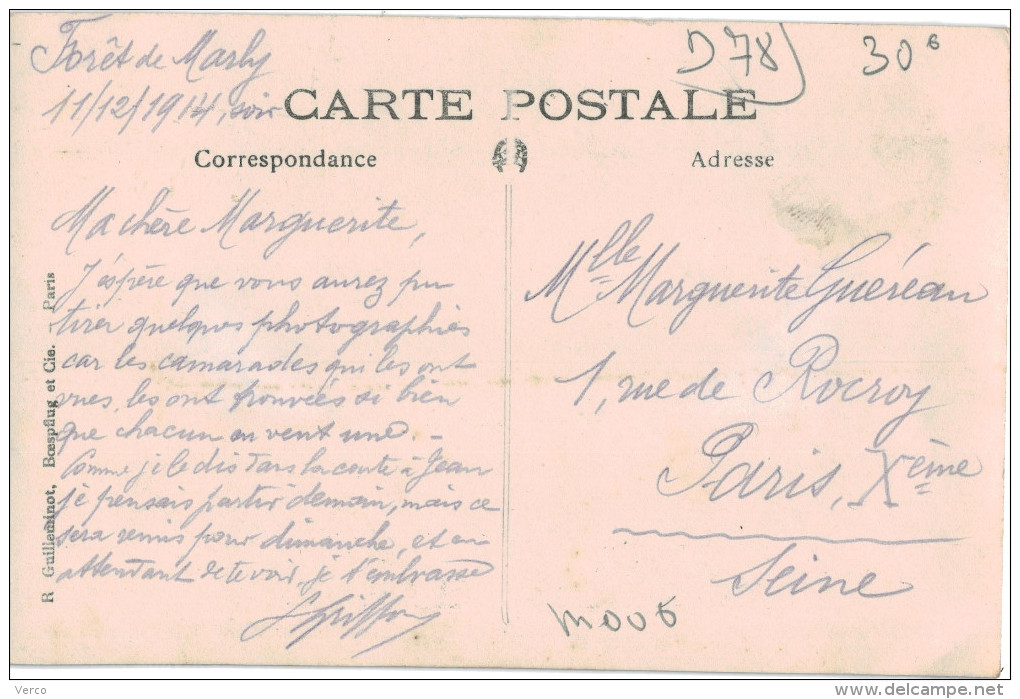 Forêt de Marly
D78
30
11/12/1914, soir
CARTE POSTALE
Correspondance
Adresse
Ma chère Marguerite,
J'éspère que vous aurez pu
tirer quelques photographies
car les camarades qui les ont
vues, les ont trouvées si bien
que chacun en veut une. -
Comme je le dis dans la carte à Jean
je pensais partir demain, mais ce
sera remis pour dimanche, et en
attendant de te voir, je t'embrasse
Mlle Marguerite Guéréau
1, rue de Rocroy
Paris, Xème
Seine
R Guilleminot, Bœspflug et Cie. Paris
Verco
http://www.delcampe.net